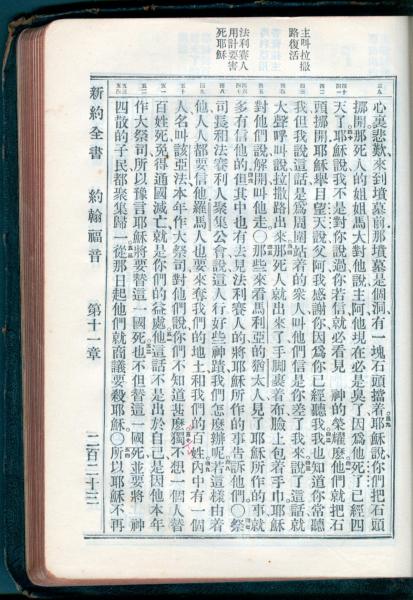 主叫拉撒
路復活
法利賽人
用計要害
死耶穌
心裏悲歎來到墳墓前那墳墓是個洞有一塊石頭擋着耶穌說你們把石頭
挪開那死人的姐姐馬大對他說主阿他現在必是臭了因爲他死了已經四
天了耶穌說我不是對你說過你若信就必看見 神的榮耀麽他們就把石
頭挪開耶穌舉目望天說父阿我感謝你因爲你已經聽我我也知道你常聽
我但我說這話是爲周圍站着的衆人叫他們信是你差了我來說了這話就
大聲呼叫說拉撒路出來那死人就出來了手脚裹着布臉上包着手巾耶穌
對他們說解開叫他走○那些來看馬利亞的猶太人見了耶穌所作的事就
多有信他的但其中也有去見法利賽人的將耶穌所作的事告訴他們○祭
司長和法利賽人聚集公會說這人行好些神蹟我們怎麽辦呢若這樣由着
他人人都要信他羅馬人也要來奪我們的地土和我們的百姓內中有一個
人名叫該亞法本年作大祭司對他們說你們不知道甚麽獨不想一個人替
百姓死免得通國滅亡就是你們的益處他這話不是出於自己是因他本年
作大祭司所以豫言耶穌將要替這一國死也不但替這一國死並要將 神
四散的子民都聚集歸一從那日起他們就商議要殺耶穌○所以耶穌不再
新約全書 約翰福音 第十一章 二百二十三